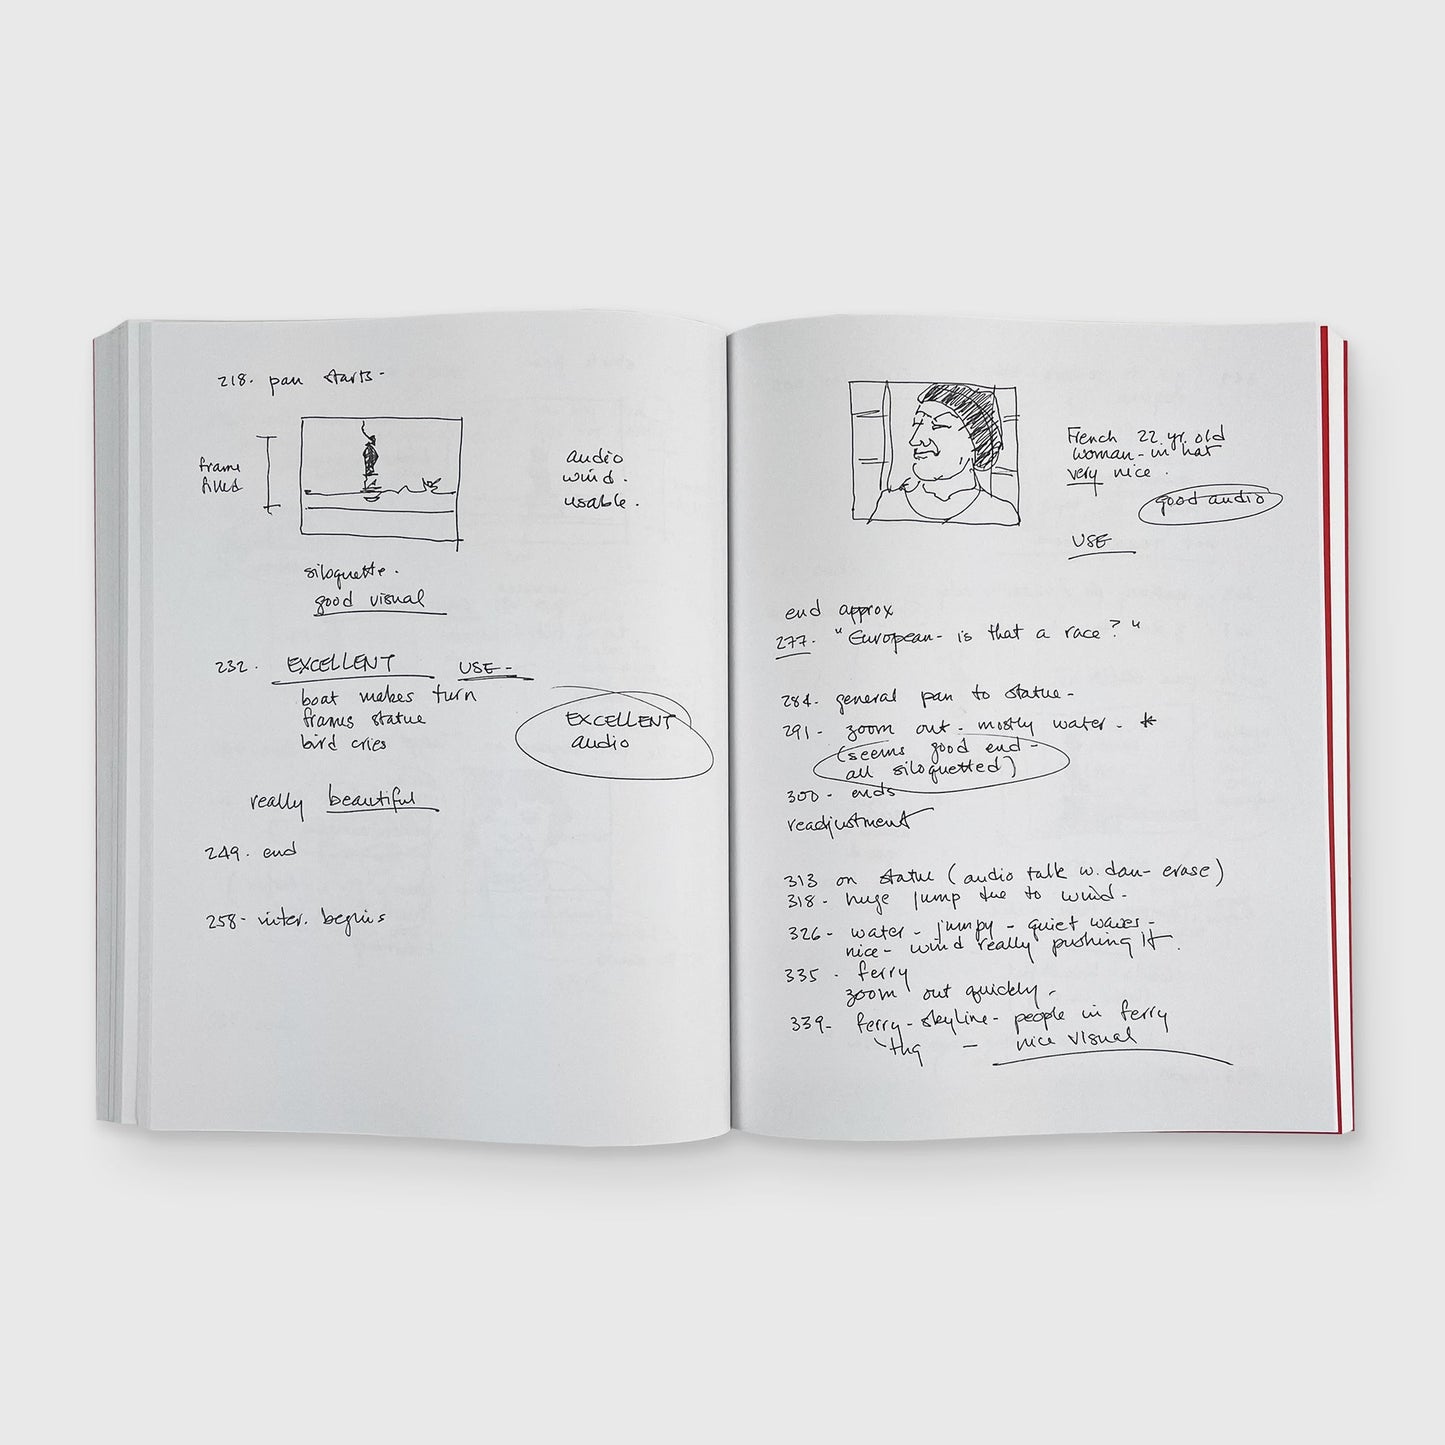 218. pan starts-
frame
filled
audio
wind.
usable.
siloquette.
good visual
232. EXCELLENT USE-
boat makes turn
frames statue
bird cries
EXCELLENT
audio
really beautiful
249. end
258- inter. begins
French 22 yr. old
woman - in hat
very nice.
good audio
USE
end approx
277. "European- is that a race?"
284. general pan to statue-
291- zoom out - mostly water - *
(seems good end-
all siloquetted)
300- ends
readjustment
313 on statue (audio talk w. dan- erase)
318- huge jump due to wind-
326- water - jumpy - quiet waves-
nice- wind really pushing it.
335. ferry
zoom out quickly-
339- ferry-skyline- people in ferry
- nice visual